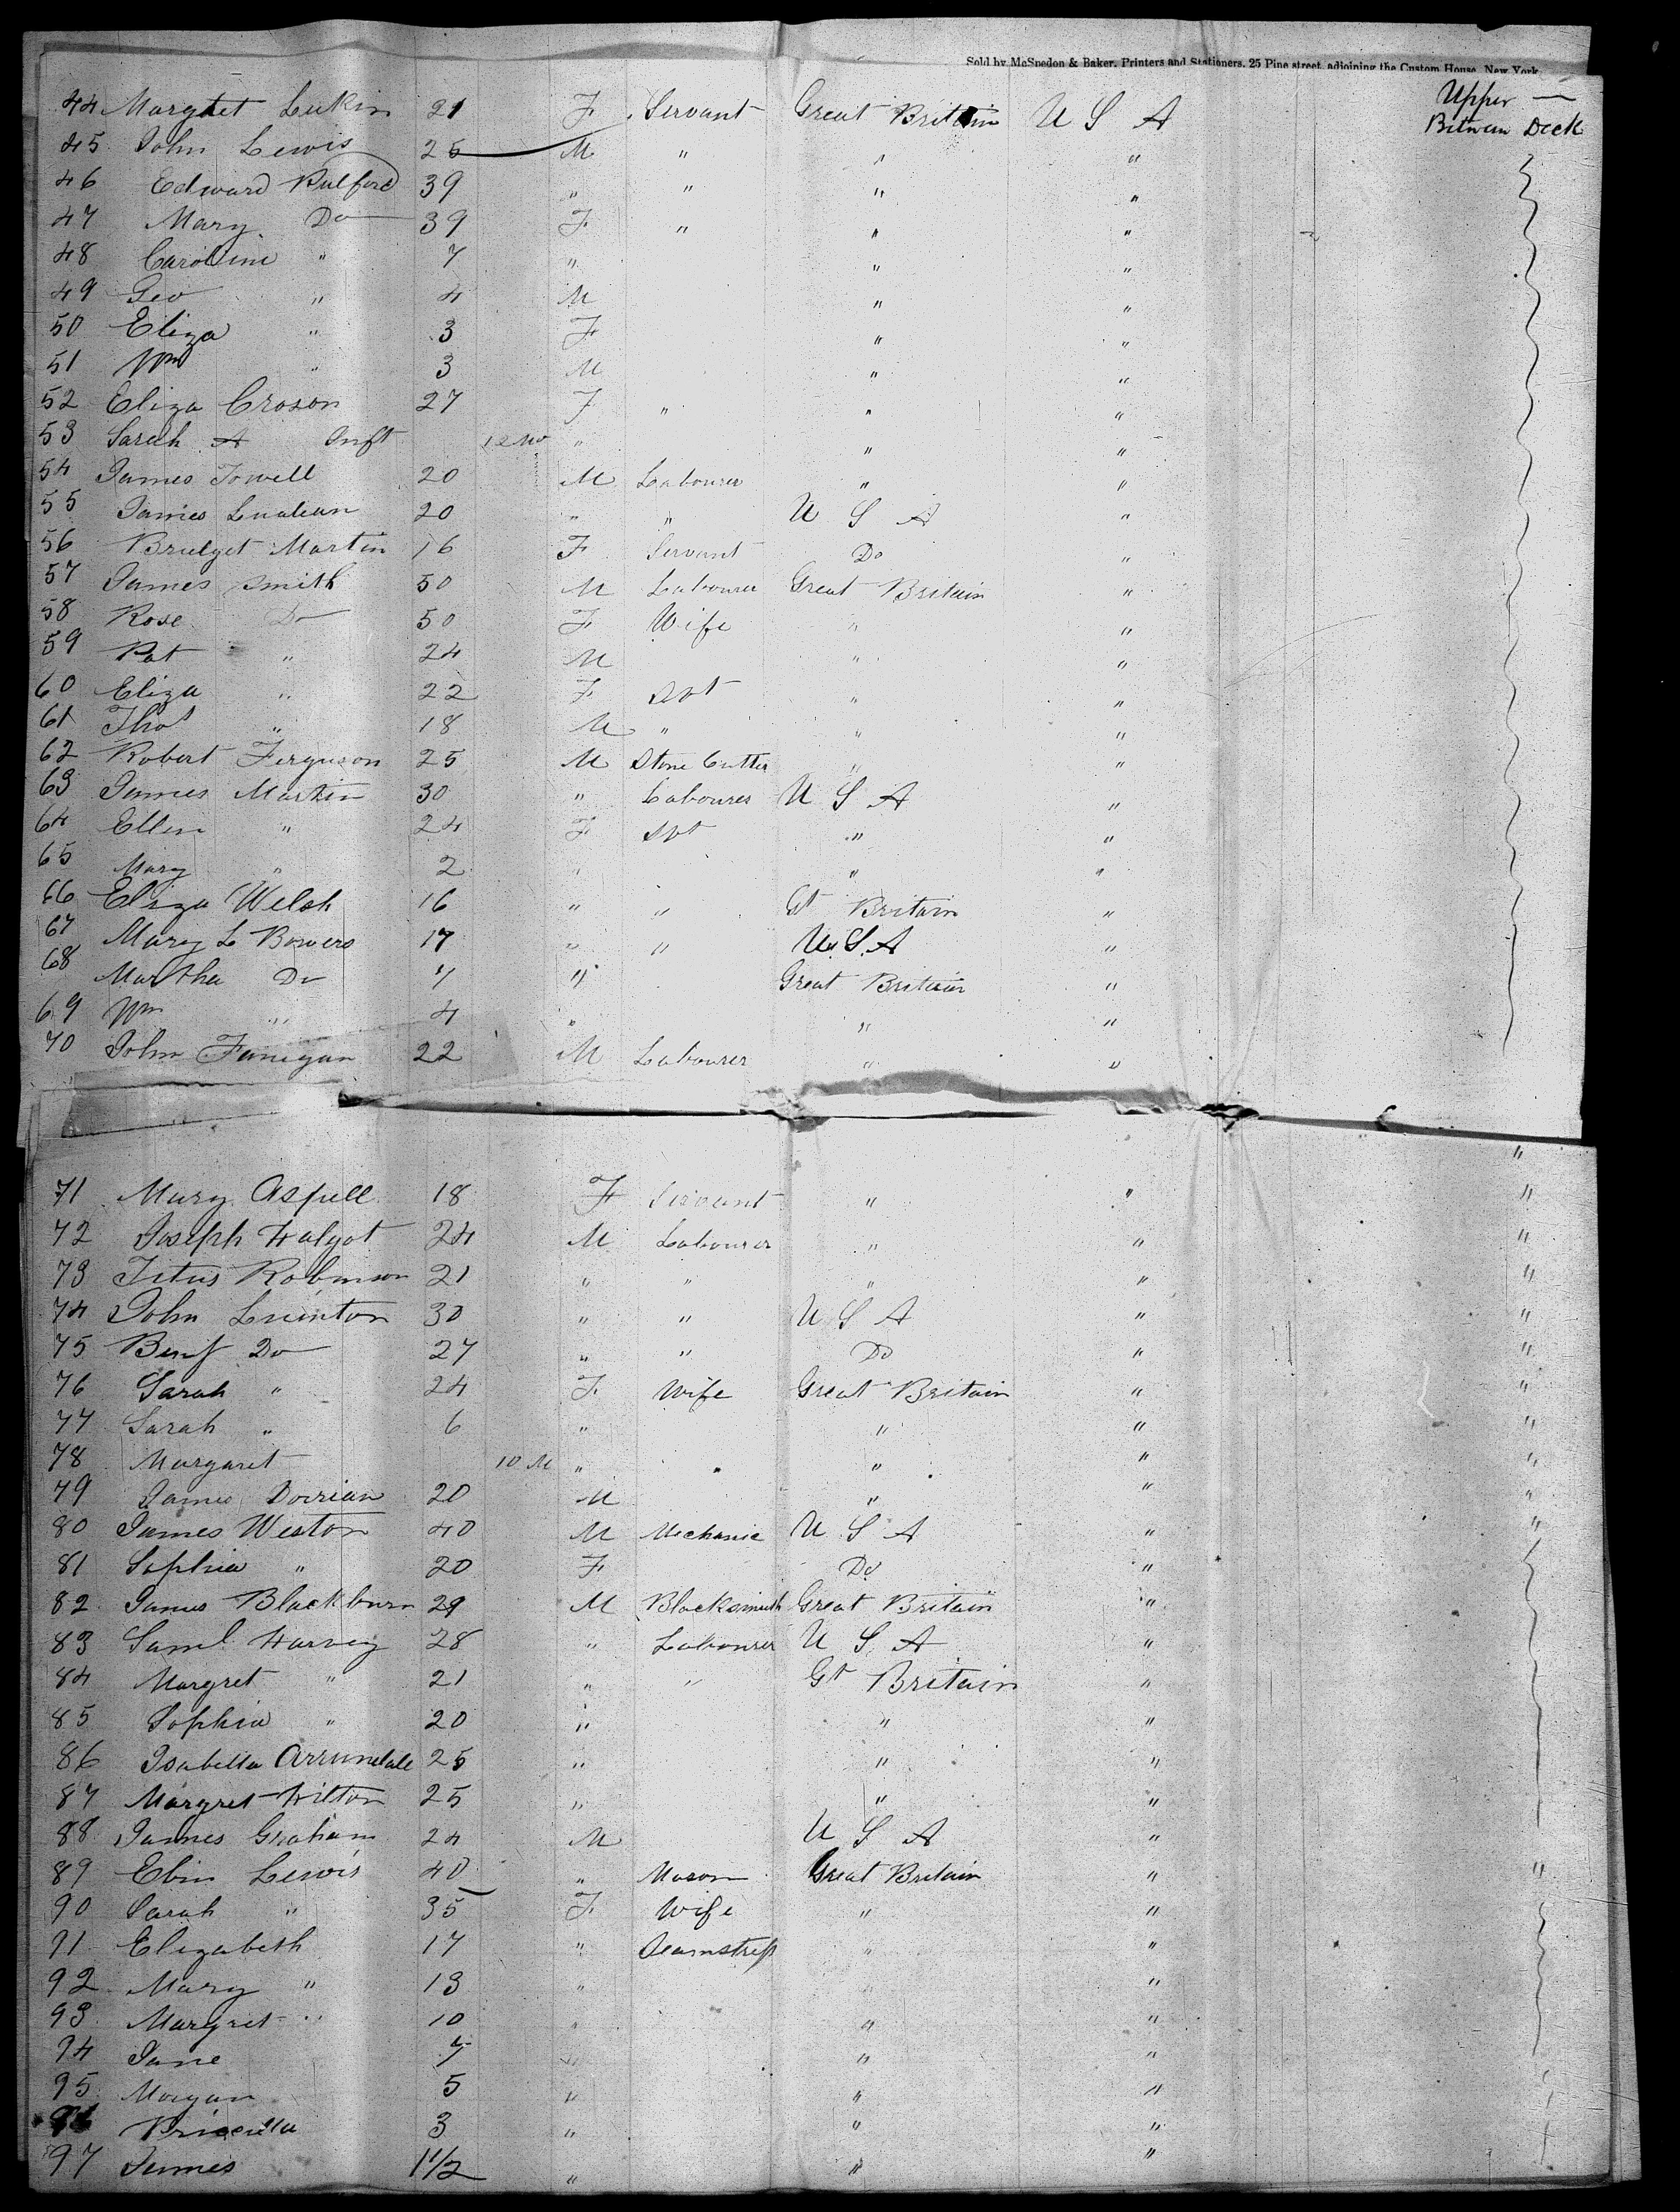 Sold by McSpedon & Baker, Printers and Stationers, 25 Pine street, adjoining the Custom House, New York
44 Margret Lukin 21 F Servant Great Britain U S A Upper —
Between Deck
45 John Lewis 25 M " " "
46 Edward Pulford 39 " " " "
47 Mary Do 39 F " " "
48 Caroline " 7 " " "
49 Geo " 4 M " "
50 Eliza " 3 F " "
51 Wm " 3 M " "
52 Eliza Croson 27 F " " "
53 Sarah A Inft 12 Mo " " "
54 James Towell 20 M Labourer " "
55 James 20 " " U S A "
56 Bridget Martin 16 F Servant Do "
57 James Smith 50 M Labourer Great Britain "
58 Rose Do 50 F Wife " "
59 Pat " 24 M " "
60 Eliza " 22 F Svt " "
61 Thos " 18 M " " "
62 Robert Ferguson 25 M Stone Cutter " "
63 James Martin 30 " Labourer U S A "
64 Ellen " 24 F Svt " "
65 Mary " 2 " " "
66 Eliza Welsh 16 " " Gt Britain "
67 Mary L Bowers 17 " " U.S.A "
68 Martha Do 7 " Great Britain "
69 Wm " 4 " " "
70 John Fanigan 22 M Labourer " "
"
71 Mary Aspell 18 F Servant " " "
72 Joseph Halgat 24 M Labourer " " "
73 Titus Robinson 21 " " " " "
74 John Luinton 30 " " U S A " "
75 Benj Do 27 " " Do " "
76 Sarah " 24 F Wife Great Britain " "
77 Sarah " 6 " " " "
78 Margaret 10 M " " " "
79 James Dorrian 20 M " " "
80 James Weston 40 M Mechanic U S A " "
81 Sophia " 20 F Do "
82 James Blackburn 29 M Blacksmith Great Britain "
83 Saml Harvey 28 " Labourer U S A "
84 Margret " 21 " " Gt Britain "
85 Sophia " 20 " " "
86 Isabella Arrundale 25 " " "
87 Margret Hilton 25 " " "
88 James Graham 24 M U S A "
89 Ebin Lewis 40 " Mason Great Britain " "
90 Sarah " 35 F Wife " "
91 Elizabeth 17 " Seamstress " "
92 Mary " 13 " " "
93 Margret " 10 " " "
94 Jane 7 " " "
95 Morgan 5 " " "
96 Priscilla 3 " " "
97 James 1 1/2 " " "